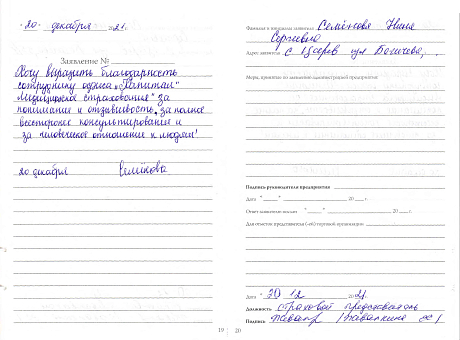 " 20 " декабря 2021.
Заявление № ____
Хочу выразить благодарность
сотруднику офиса „Капитал"
Медицинское страхование" за
понимание и отзывчивость, за полное
всестороннее консультирование и
за человеческое отношение к людям!
20 декабря Семёнова
19
Фамилия и инициалы заявителя Семёнова Нина
Сергеевна
Адрес заявителя с ул
Меры, принятые по заявлению администрацией предприятия
Подпись руководителя предприятия
Дата "____" ____ 20 ___ г.
Ответ заявителю выслан "____" ____ 20 ___ г.
Для отметок представителя (-ей) торговой организации
Дата " 20 " 12 2021.
Должность страховой представитель
Подпись
20